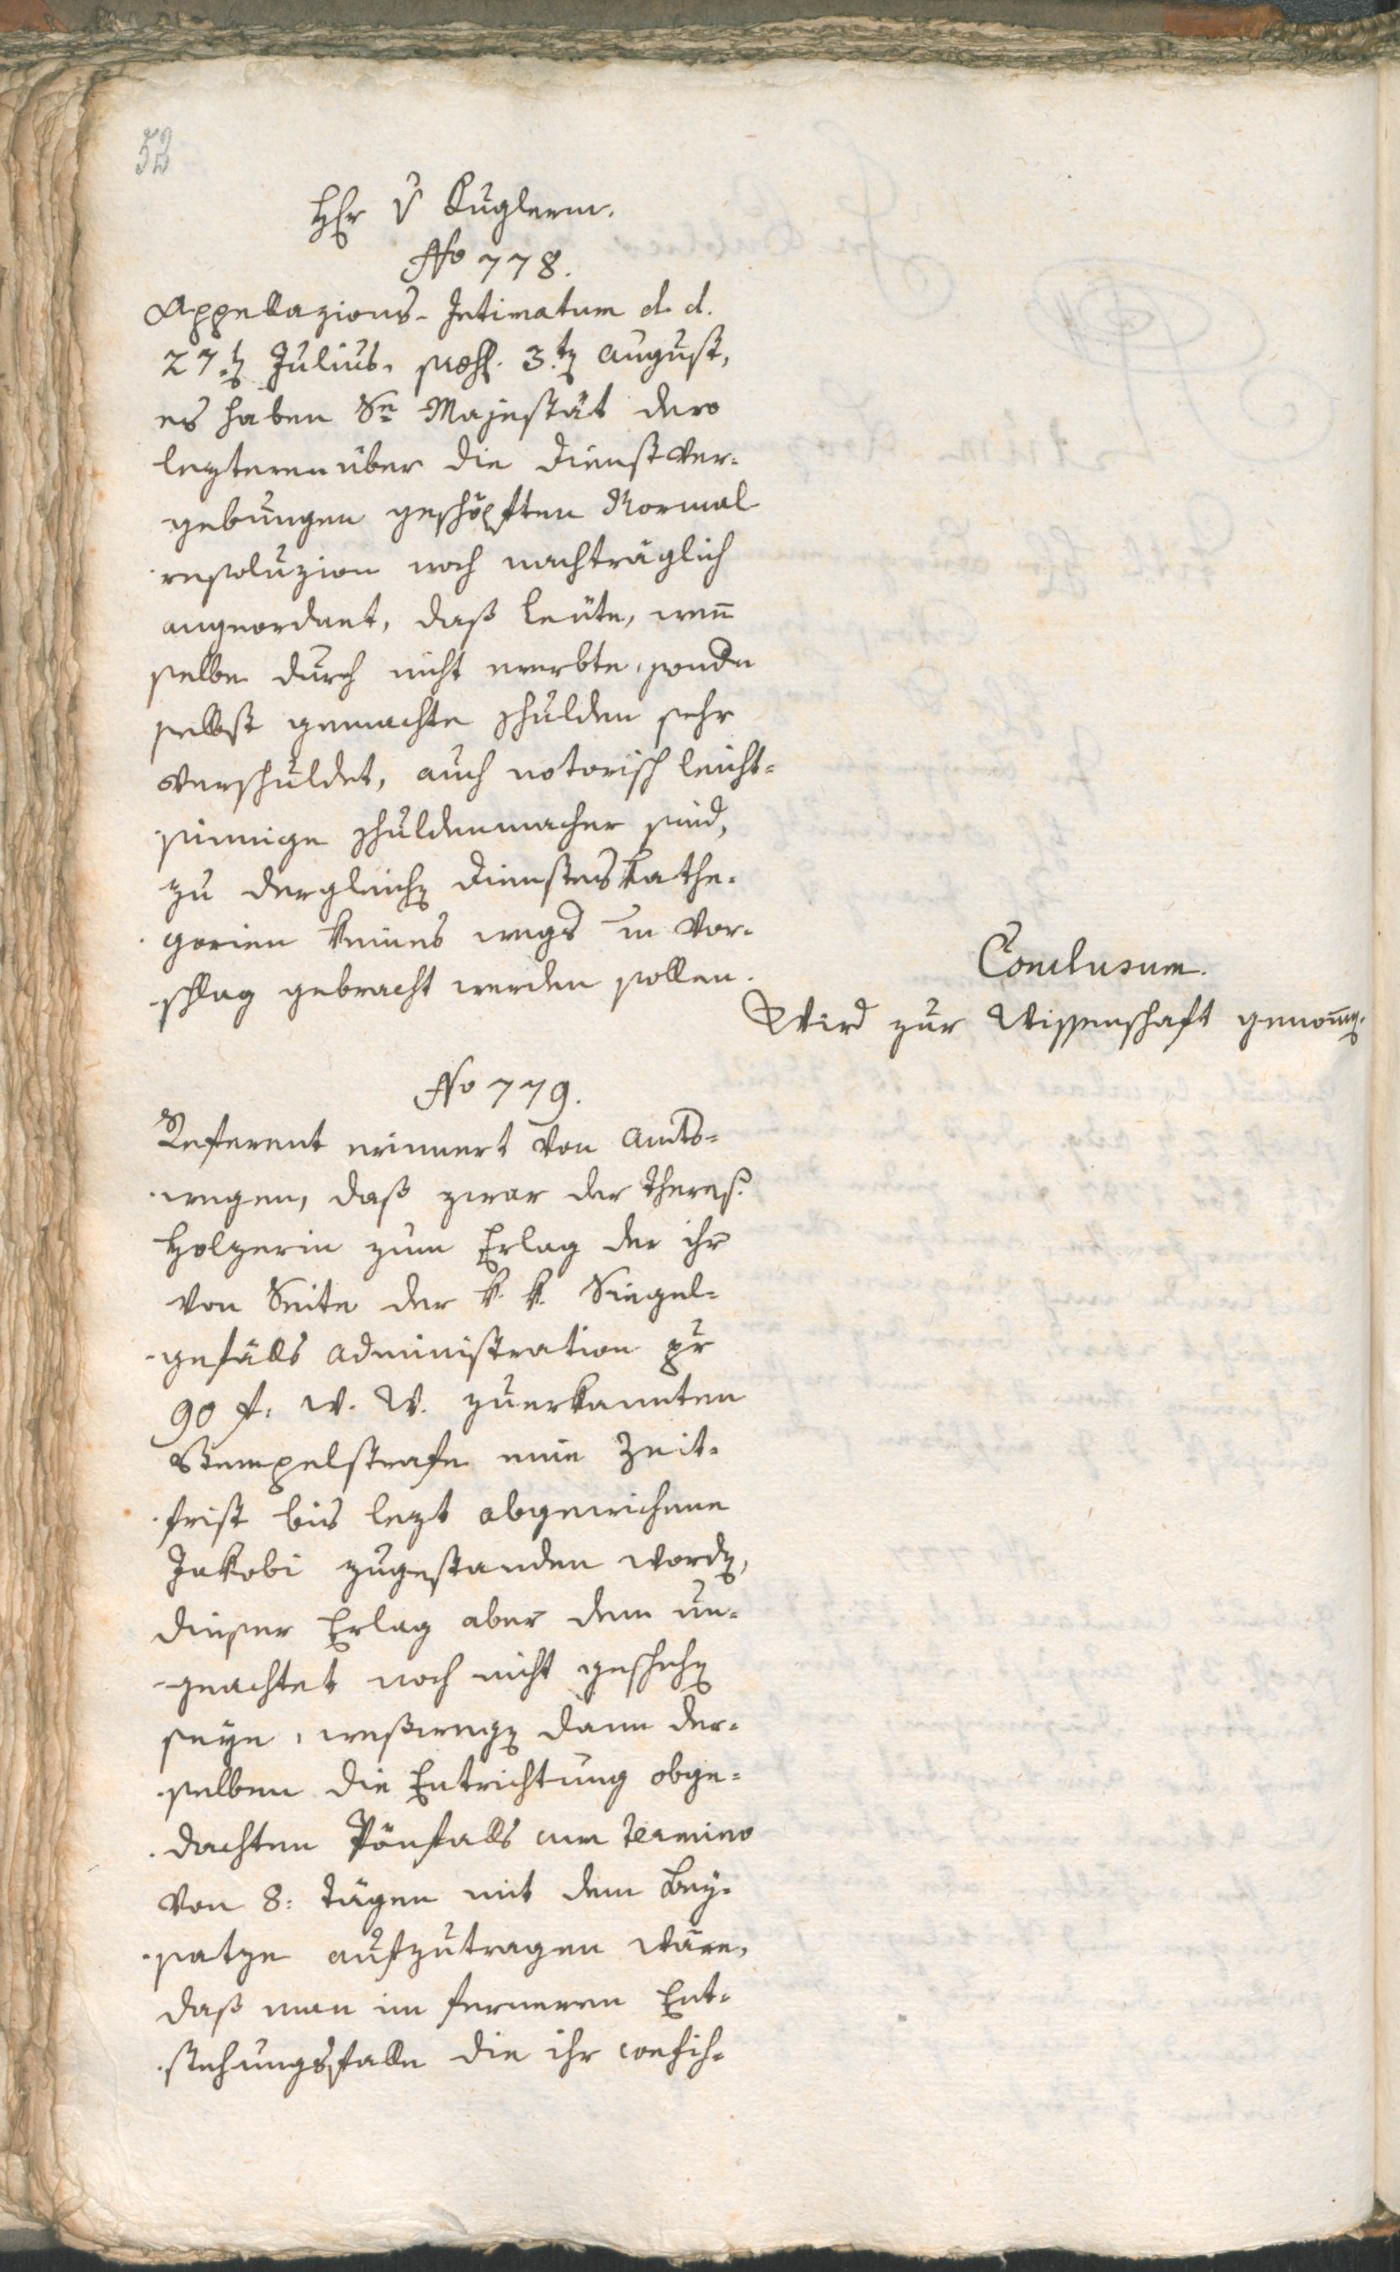 52
Hr v Kuglern.
No 778.
Appellazions-Intimatum d. d.
27.t Julius. præs. 3.ten August,
es haben Se Majestät dero
lezteren über die Dienstver-
gebungen geschöpften Normal
resoluzion noch nachträglich
angeordnet, daß Leute, wenn
selbe durch nicht ererbte, sonde
selbst gemachte schulden sehr
verschuldet, auch notorisch leicht-
sinnige schuldenmacher sind,
zu dergleichen Dienstes kathe-
gorien keines wegs in Vor-
schlag gebracht werden sollen.
Conclusum.
Wird zur Wissenschaft genommen.
No 779.
Referent erinnert von Amts-
wegen, daß zwar der Theres.
Holzerin zum Erlag der ihr
von Seite der k. k. Siegel-
gefälls Administration pr
90 f. W. W. zuerkannten
Stempelstrafe eine Zeit-
frist bis lezt abgewichene
Jakobi zugestanden worden,
dieser Erlag aber dem un-
geachtet noch nicht geschehen
seye, weßwegen dann der-
selben die Entrichtung obge-
dachten Pönfalls cum Termino
von 8: Tägen mit dem Bey-
satze aufzutragen wäre,
daß man im ferneren Ent-
stehungsfalle die ihr confis-